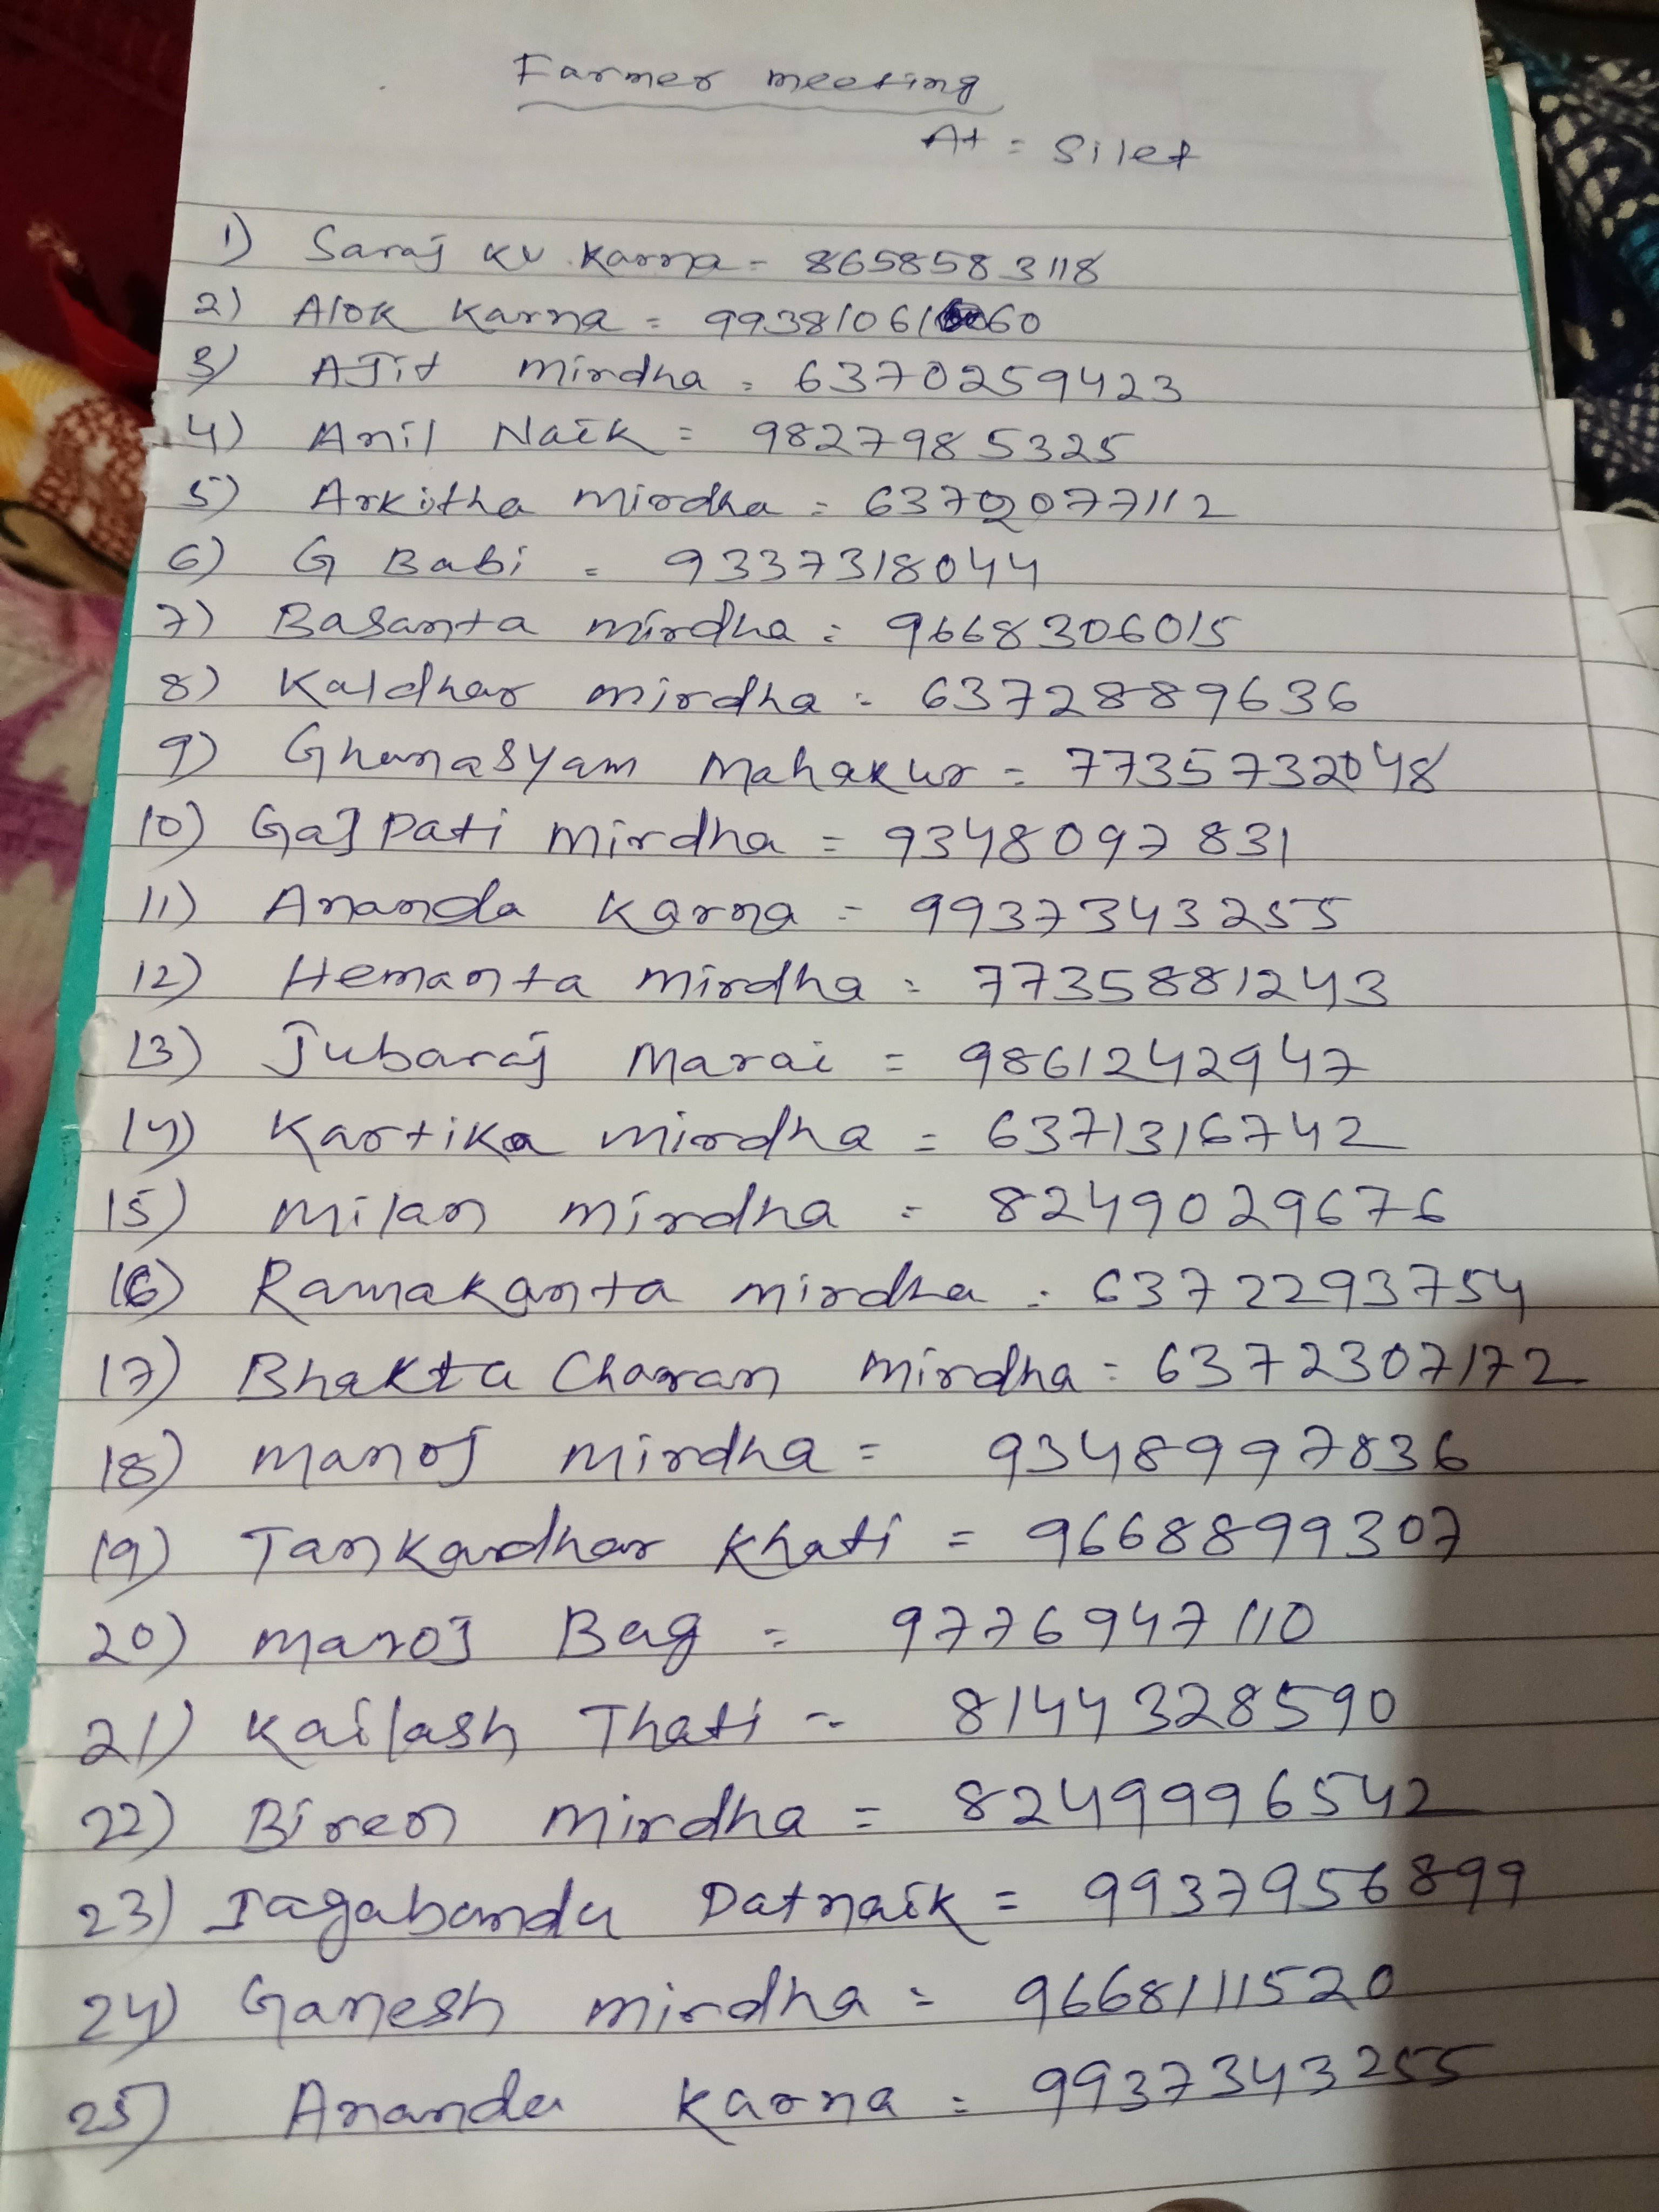 Farmer meeting
At = Silet
1) Saroj ku. Karna = 8658583118
2) Alok Karna = 9938106160
3) AJit mirdha = 6370259423
4) Anil Naik = 9827985325
5) Arkitha mirdha = 6372077112
6) G Babi = 9337318044
7) Basanta mirdha = 9668306015
8) Kaldhar mirdha = 6372889636
9) Ghanasyam Mahakur = 7735732048
10) GaJpati mirdha = 9348097831
11) Ananda Karna = 9937343255
12) Hemanta mirdha = 7735881243
13) Jubaraj Marai = 9861242947
14) Kartika mirdha = 6371316742
15) milan mirdha = 8249029676
16) Ramakanta mirdha = 6372293754
17) Bhakta Charan mirdha = 6372307172
18) manoj mirdha = 9348997836
19) Tankardhar Khati = 9668899307
20) manoj Bag = 9776947110
21) Kailash Thati = 8144328590
22) Biren mirdha = 8249996542
23) Jagabandu Patnaik = 9937956899
24) Ganesh mirdha = 9668111520
25) Ananda Karna = 9937343255